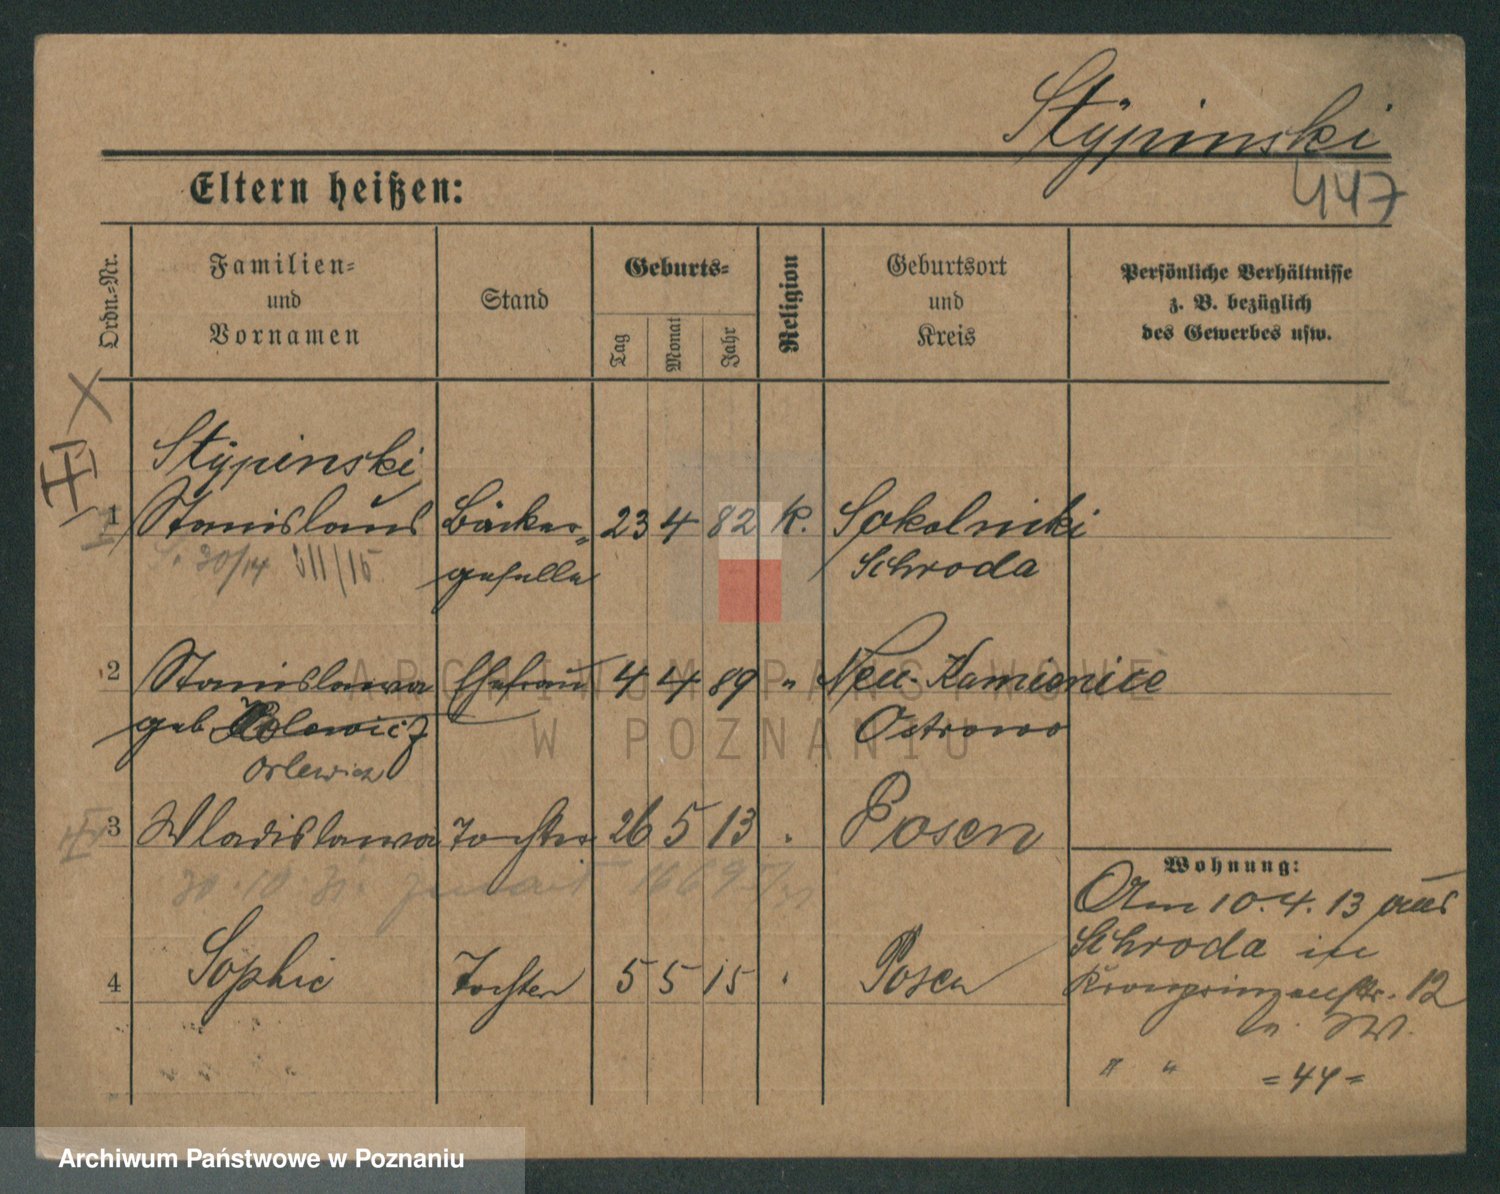 Stÿpinski
447
Eltern heißen:
Ordn.-Nr.
Familien-
und
Vornamen
Stand
Geburts-
Tag
Monat
Jahr
Religion
Geburtsort
und
Kreis
Persönliche Verhältnisse
z. B. bezüglich
des Gewerbes usw.
Stÿpinski
1 Stanislaus Bäcker- 23 4 82 K. Sokolniki
30/14 III/15 geselle Schroda
2 Stanislawa Ehefrau 4 4 89 " Neu-Kamienice
geb Ostrowo
Orlewicz
3 Wladislawa Tochter 26 5 13 " Posen
30.10.31.
4 Sophie Tochter 5 5 15 " Posen
Wohnung:
Am 10.4.13 aus
Schroda in
Kronprinzenstr. 12
b. W.
" " =44=
ARCHIWUM PAŃSTWOWE
W POZNANIU
Archiwum Państwowe w Poznaniu